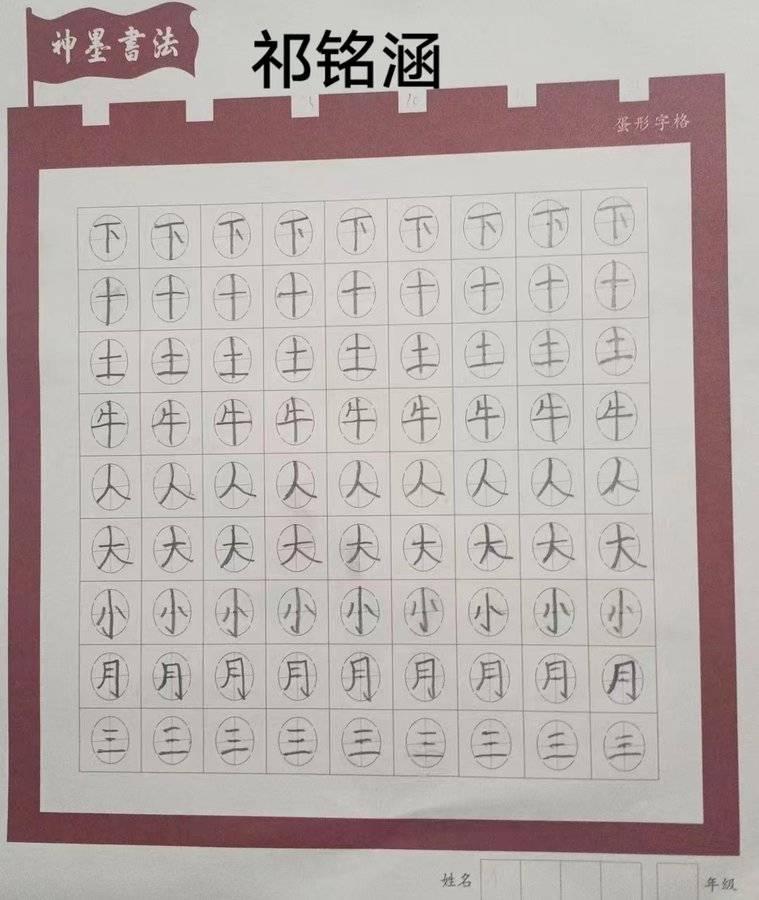 神墨書法
祁铭涵
蛋形字格
下下下下下下下下下
十十十十十十十十十
土土土土土土土土土
牛牛牛牛牛牛牛牛牛
人人人人人人人人人
大大大大大大大大大
小小小小小小小小小
月月月月月月月月月
三三三三三三三三三
姓名 年级